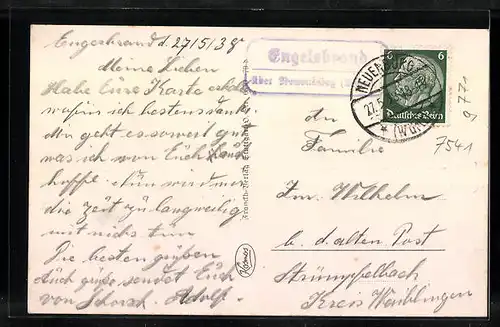 Engelsbrand d. 27/5/38
Meine Lieben
Habe Eure Karte erhalten
wofür ich bestens danke.
Mir geht es soweit gut
was ich von Euch auch
hoffe. Nun wird mir
die Zeit zu langweilig
mit nichts tun
Die besten Grüßen
Auch Grüße sendet Euch
von Adolf.
Engelsbrand
über Neuenbürg
NEUENBÜRG
27.5.
(WÜRTT)
6 6
Deutsches Reich
9771
7541
An
Familie
Im. Wilhelm
b. d. alten Post
Strümpfelbach
Kreis Waiblingen